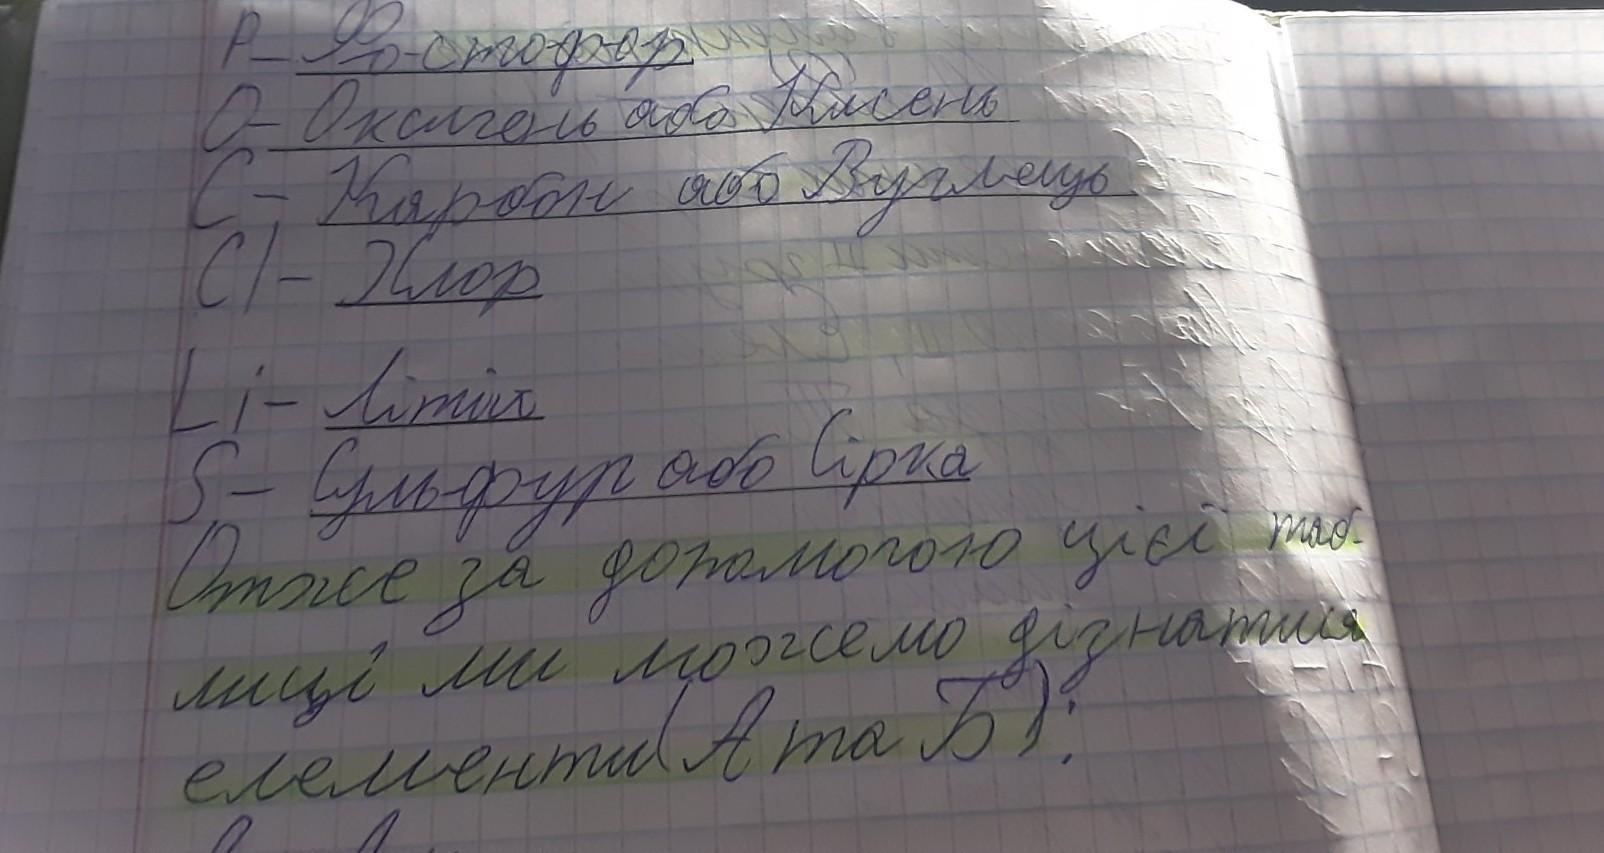 P - Фо-стофор
O - Оксиген або Кисень
C - Карбон або Вуглець
Cl - Хлор
Li - Літій
S - Сульфур або Сірка
Отже за допомогою цієї таб-
лиці ми можемо дізнатися
елементи (А та Б):